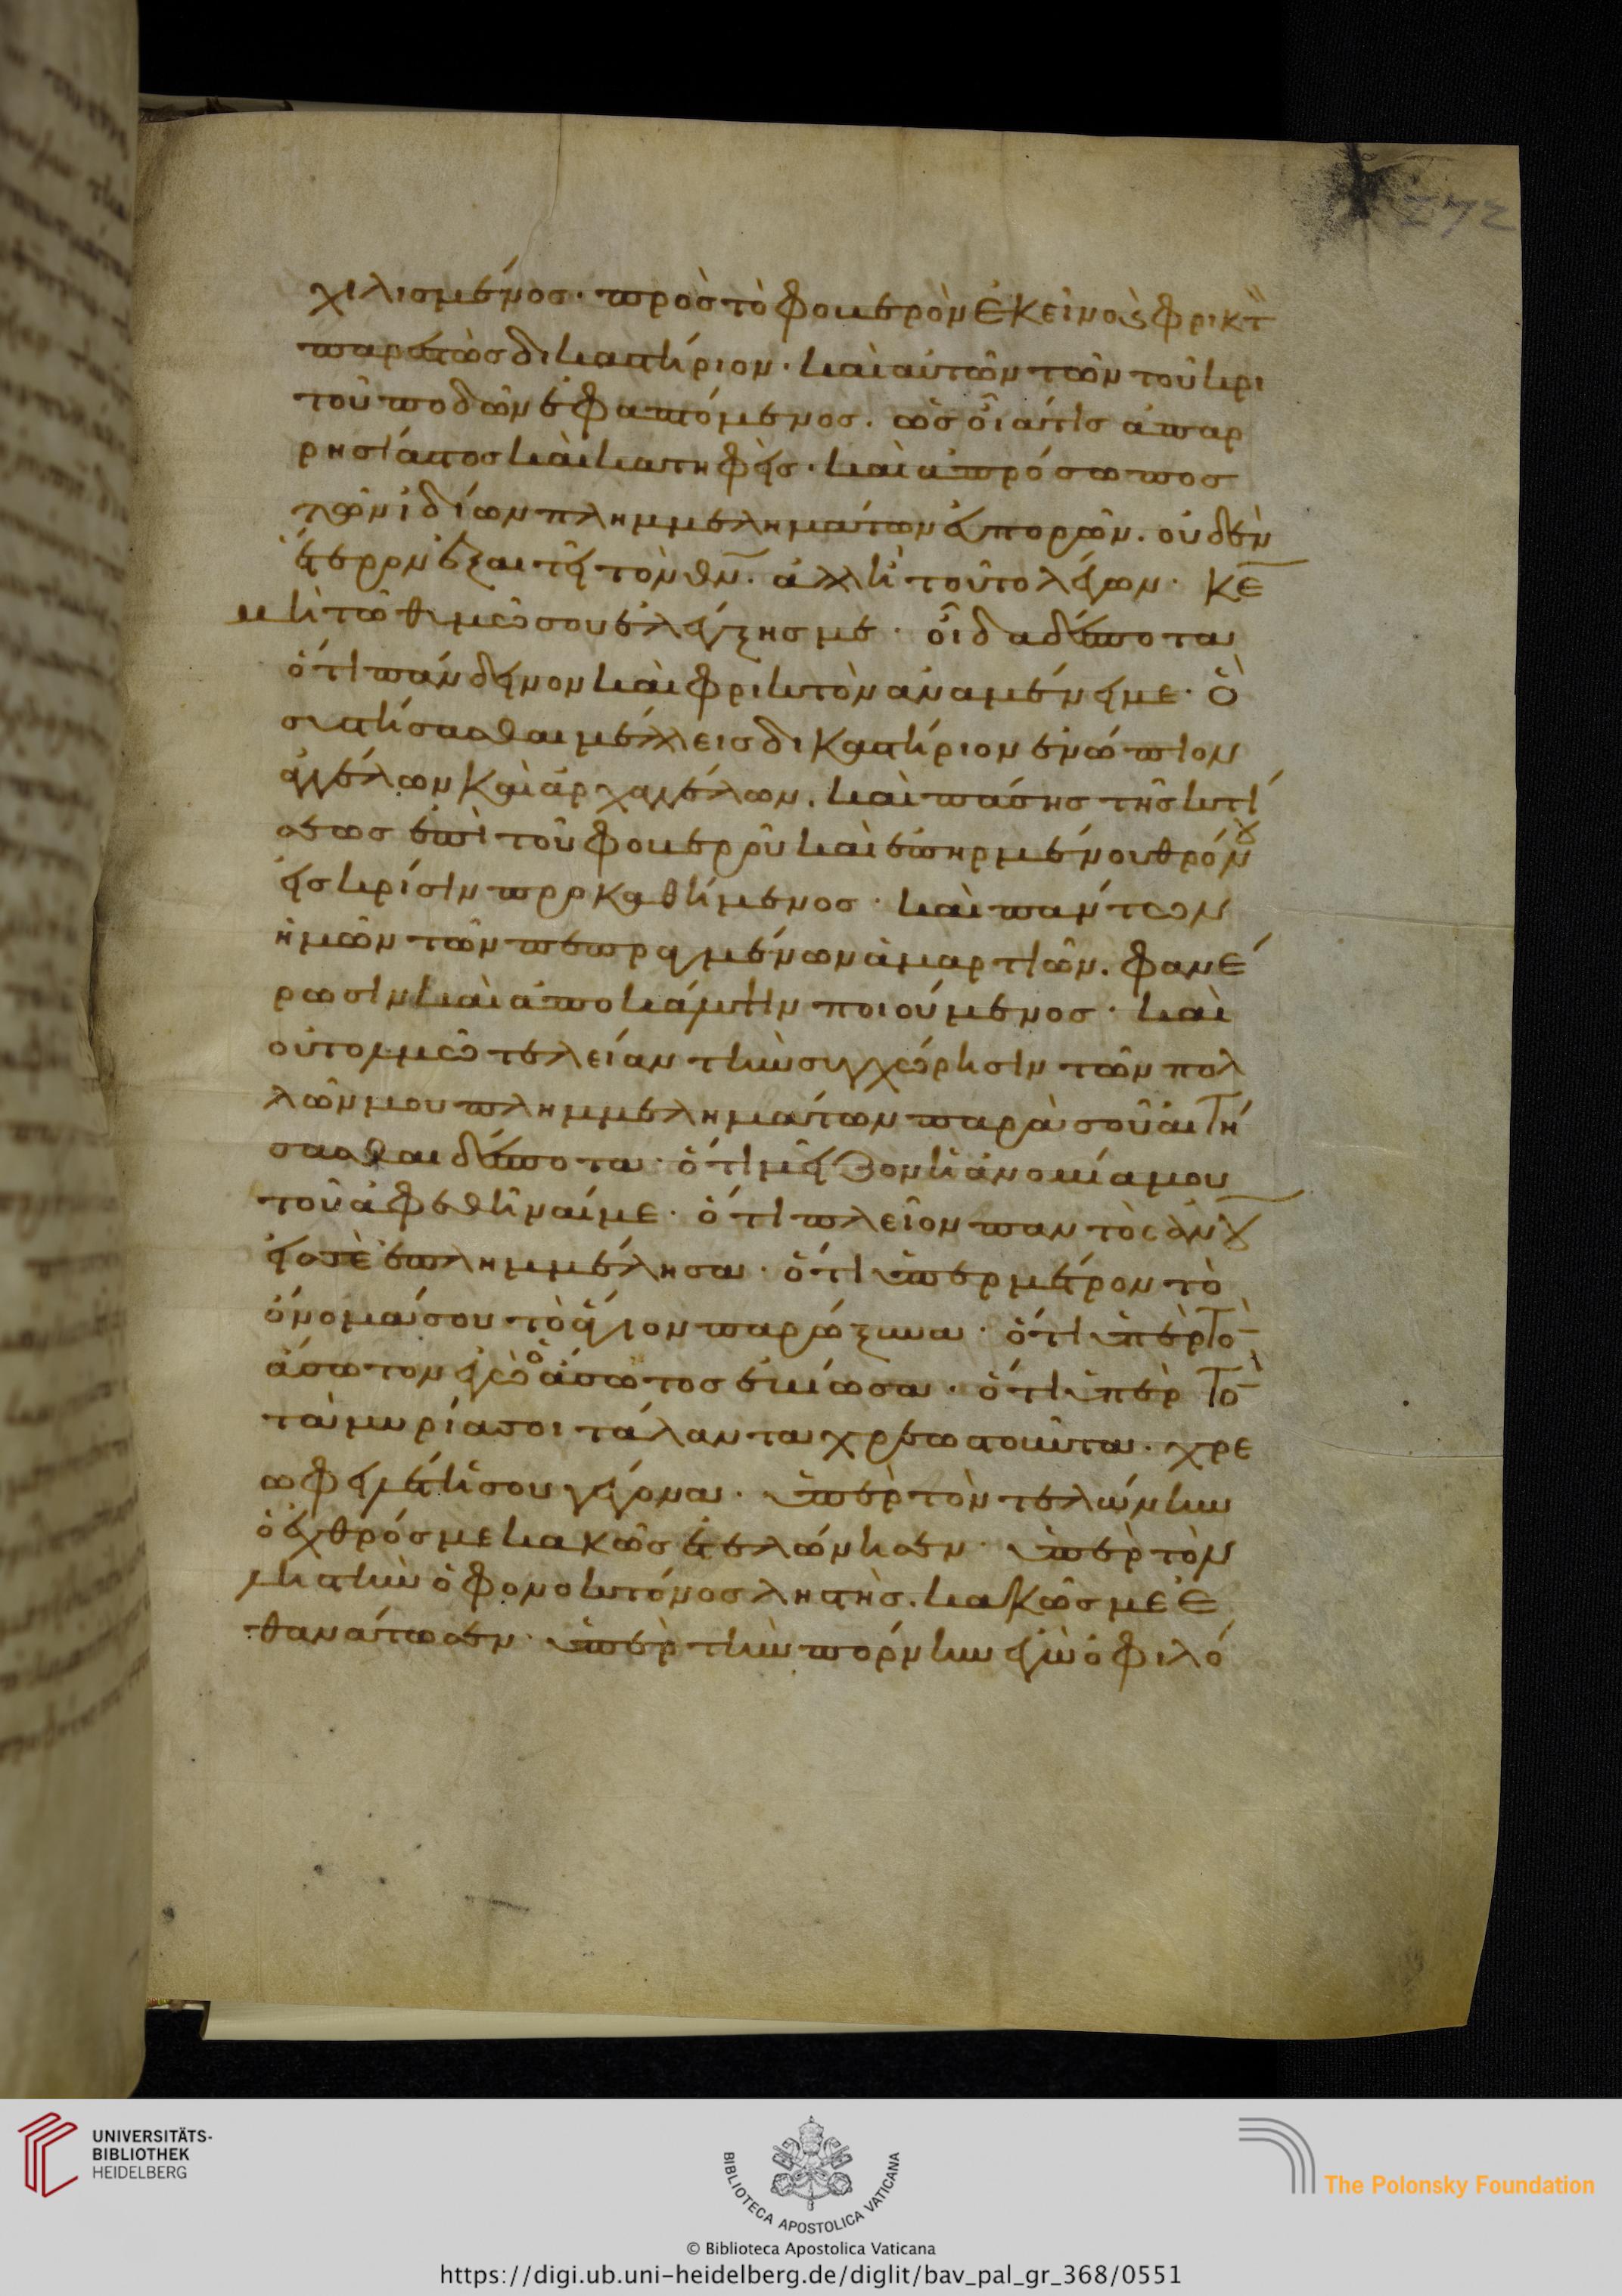 272
χιλισμένος· πρὸς τὸ φουβερὸν ἐκεῖνο ϗ φρικτὸν
παρεστὼς δικαστήριον· καὶ αὐτῶν τῶν τοῦ κρι
τοῦ ποδῶν ἐφαπτόμενος. ὡς οἷα τίς ἀπαρ
ρησίαστος καὶ κατηφὴς· καὶ ἀπρόσωπος
τῶν ἰδίων πλημμελημάτων εὐπορῶν. οὐδὲν
ἕτερον ἐξαιτεῖ τὸν θν. ἀλλ' ἢ τοῦτο λέγων· κε
μὴ τῶ θυμῶ σου ἐλέγξης με· οἶδα δέσποτα
ὅτι πάνδεινον καὶ φρικτὸν ἀναμένει με· ὃ
συστήσασθαι μέλλεις δικαστήριον ἐνώπιον
ἀγγέλων καὶ ἀρχαγγέλων. καὶ πάσης τῆς κτί
σεως ἐπὶ τοῦ φουβεροῦ καὶ ἐπηρμένου θρόνου
εἰς κρίσιν προκαθήμενος· καὶ πάντων
ἡμῶν τῶν πεπραγμένων ἁμαρτιῶν. φανέ
ρωσιν καὶ ἀποκάλυψιν ποιούμενος· καὶ
οὐ τολμῶ τελείαν τὴν συγχώρησιν τῶν πολ
λῶν μου πλημμελημάτων παρὰ σοῦ αἰτή
σασθαι δέσποτα· ὅτι μεῖζον ἡ ἀνομία μου
τοῦ ἀφεθῆναί με· ὅτι πλεῖον παντὸς ἀνου
εἰς σὲ ἐπλημμέλησα· ὅτι ὑπὲρ μέτρον τὸ
ὄνομά σου τὸ ἅγιον παρώξυνα· ὅτι ὑπὲρ τὸν
ἄσωτον ἐγὼ ὁ ἄσωτος ἐβίωσα· ὅτι ὑπὲρ τὸν
τὰ μυρία σοι τάλαντα χρεωστοῦντα. χρε
ωφειλέτης σου γέγονα· ὑπὲρ τὸν τελώνην
ὁ ἐχθρός με κακῶς ἐτελώνησεν· ὑπὲρ τὸν
ληστὴν ὁ φονοκτόνος ληστής. κακῶς με ἐ
θανάτωσεν· ὑπὲρ τὴν πόρνην ἐγὼ ὁ φιλό
UNIVERSITÄTS-
BIBLIOTHEK
HEIDELBERG
BIBLIOTECA APOSTOLICA VATICANA
The Polonsky Foundation
© Biblioteca Apostolica Vaticana
https://digi.ub.uni-heidelberg.de/diglit/bav_pal_gr_368/0551